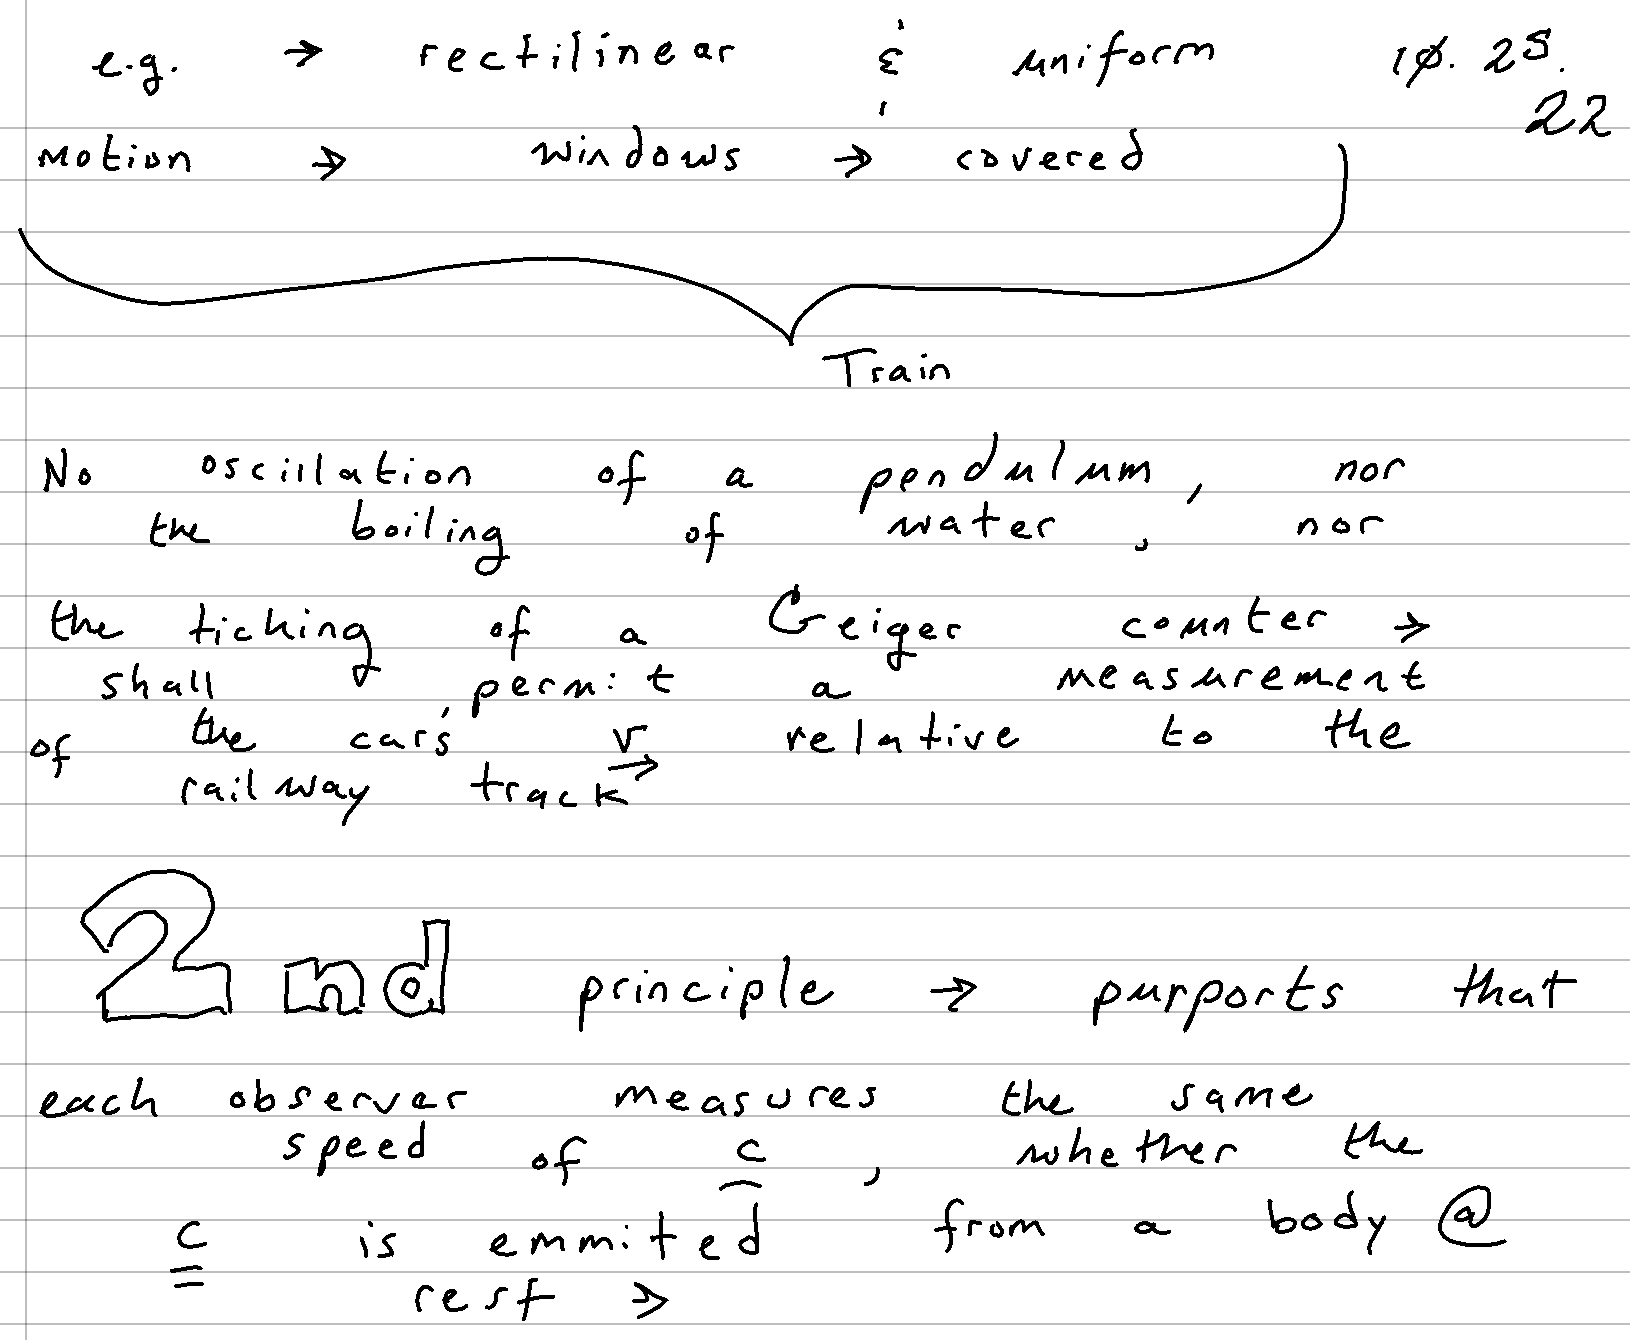 e.g. → rectilinear & uniform 10. 25.
22
motion → windows → covered
Train
No oscillation of a pendulum, nor
the boiling of water, nor
the ticking of a Geiger counter →
shall permit a measurement
of the cars' v relative to the
railway track
2nd principle → purports that
each observer measures the same
speed of c, whether the
c is emmited from a body @
rest →